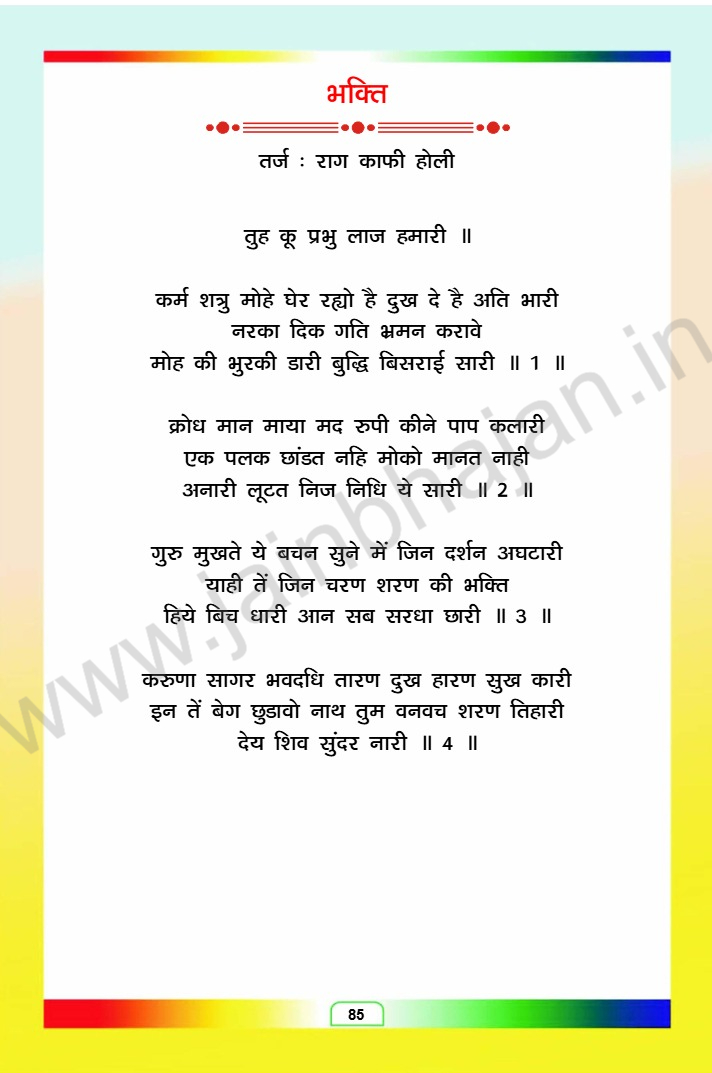 भक्ति
तर्ज : राग काफी होली
तुह कू प्रभु लाज हमारी ॥
कर्म शत्रु मोहे घेर रह्यो है दुख दे है अति भारी
नरका दिक गति भ्रमन करावे
मोह की भुरकी डारी बुद्धि बिसराई सारी ॥ 1 ॥
क्रोध मान माया मद रुपी कीने पाप कलारी
एक पलक छांडत नहि मोको मानत नाही
अनारी लूटत निज निधि ये सारी ॥ 2 ॥
गुरु मुखते ये बचन सुने में जिन दर्शन अघटारी
याही तें जिन चरण शरण की भक्ति
हिये बिच धारी आन सब सरधा छारी ॥ 3 ॥
करुणा सागर भवदधि तारण दुख हारण सुख कारी
इन तें बेग छुडावो नाथ तुम वनवच शरण तिहारी
देय शिव सुंदर नारी ॥ 4 ॥
www.jainbhajan.in
85